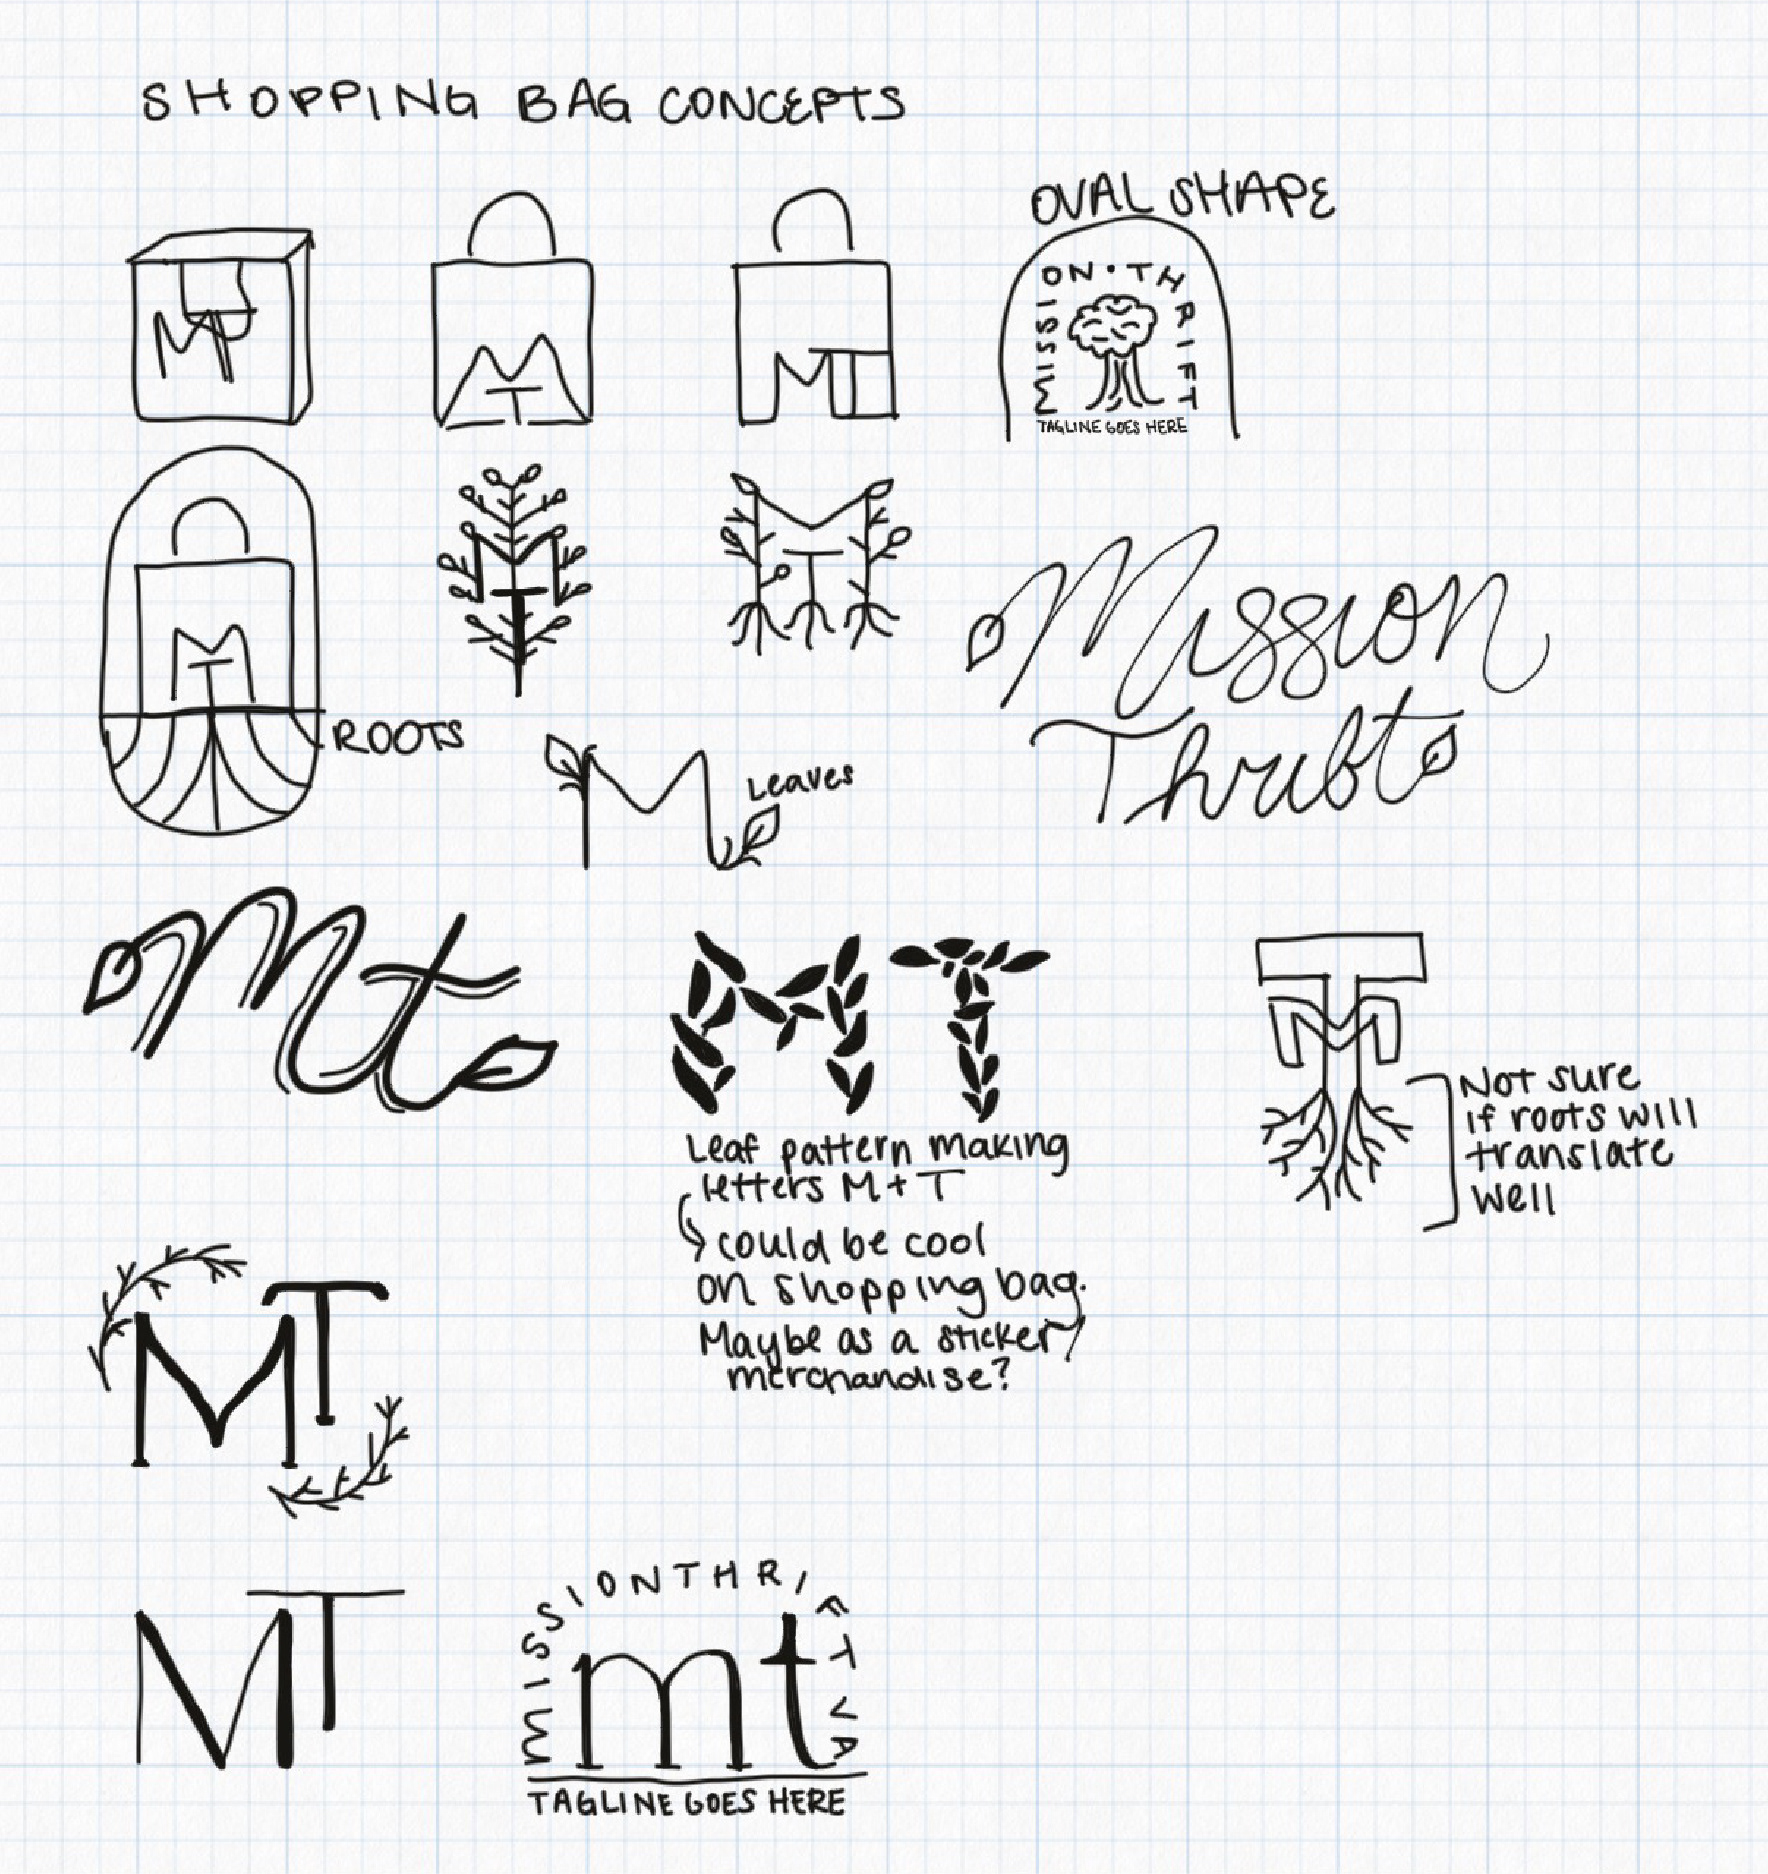 SHOPPING BAG CONCEPTS
OVAL SHAPE
MT
MT
MT
MISSION · THRIFT
TAGLINE GOES HERE
MT
ROOTS
MT
MT
Mission
Thrift
M
Leaves
Mt
MT
Leaf pattern making
letters M + T
could be cool
on shopping bag.
Maybe as a sticker/
merchandise?
TM
Not sure
if roots will
translate
well
MT
MT
MISSION THRIFT VA
mt
TAGLINE GOES HERE